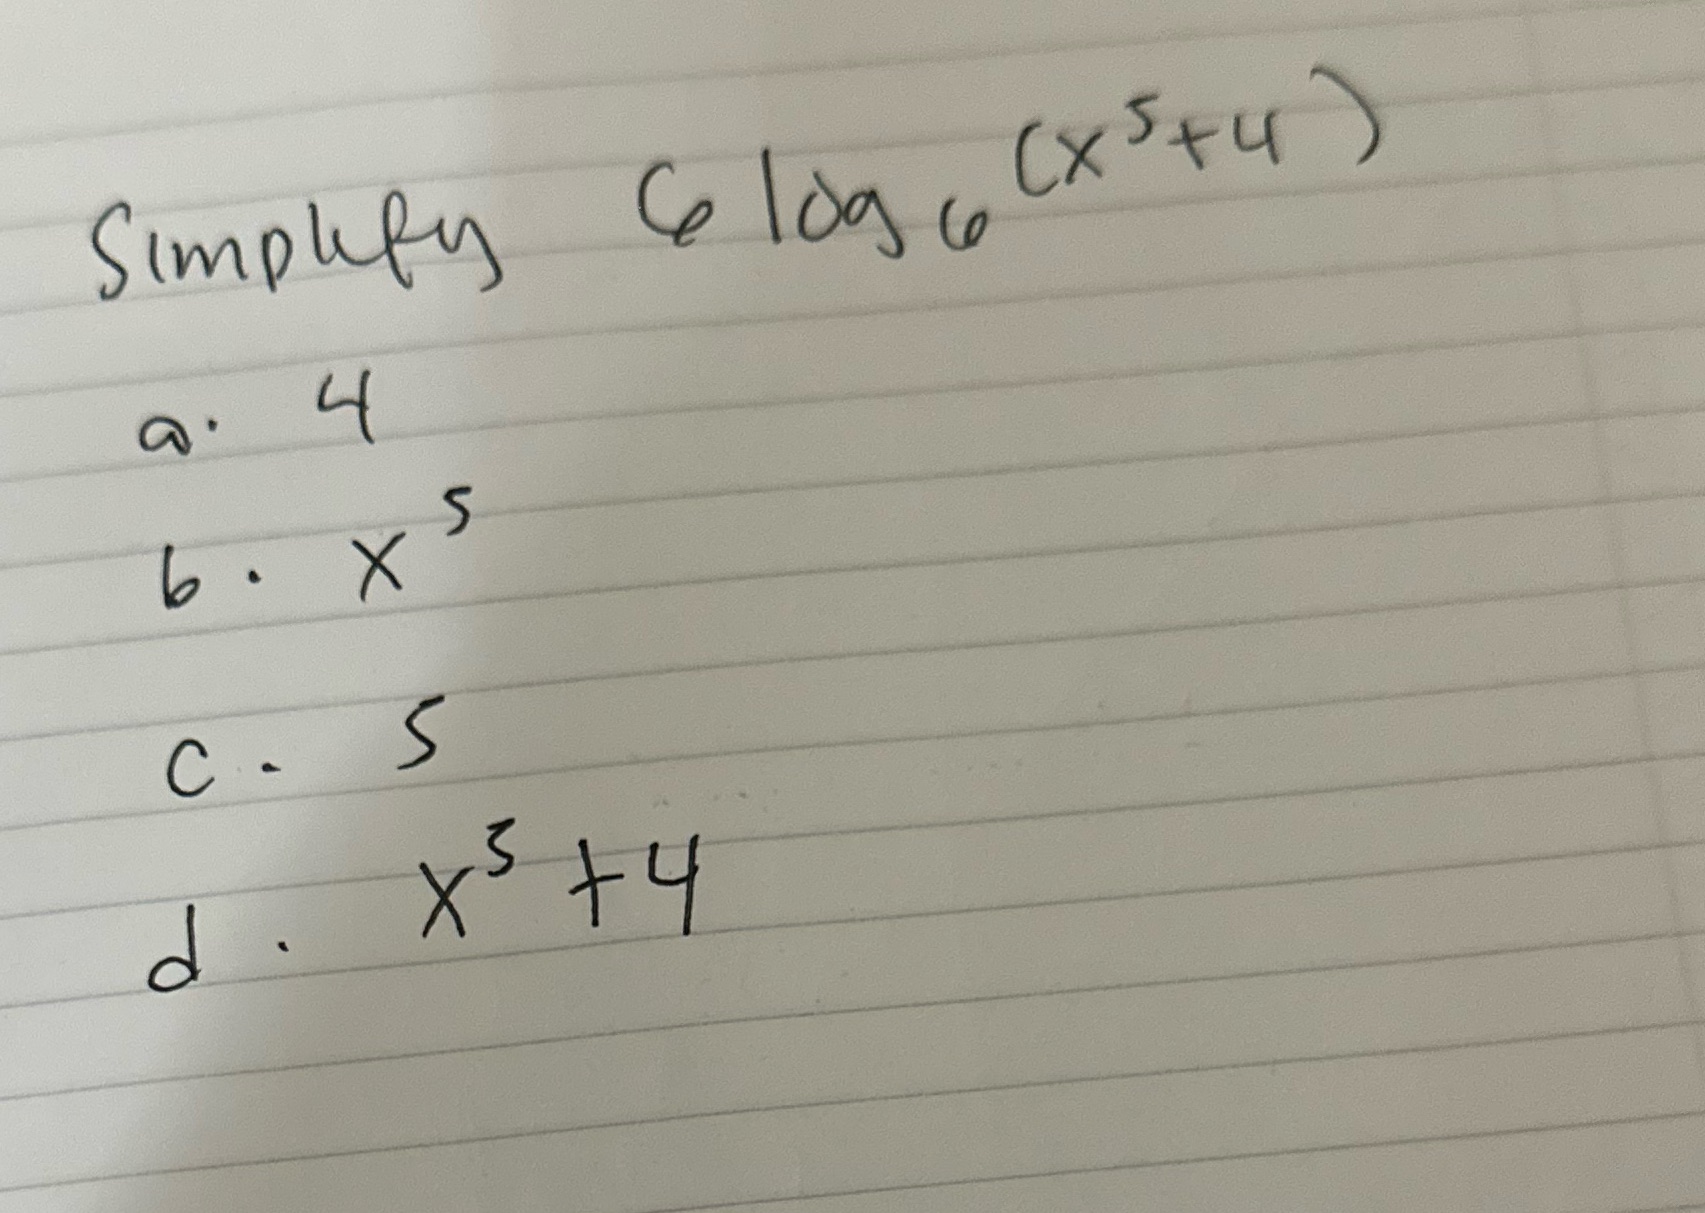 Simplify 6 log₆ (x⁵+4)
a. 4
b. x⁵
c. 5
d. x⁵ +4